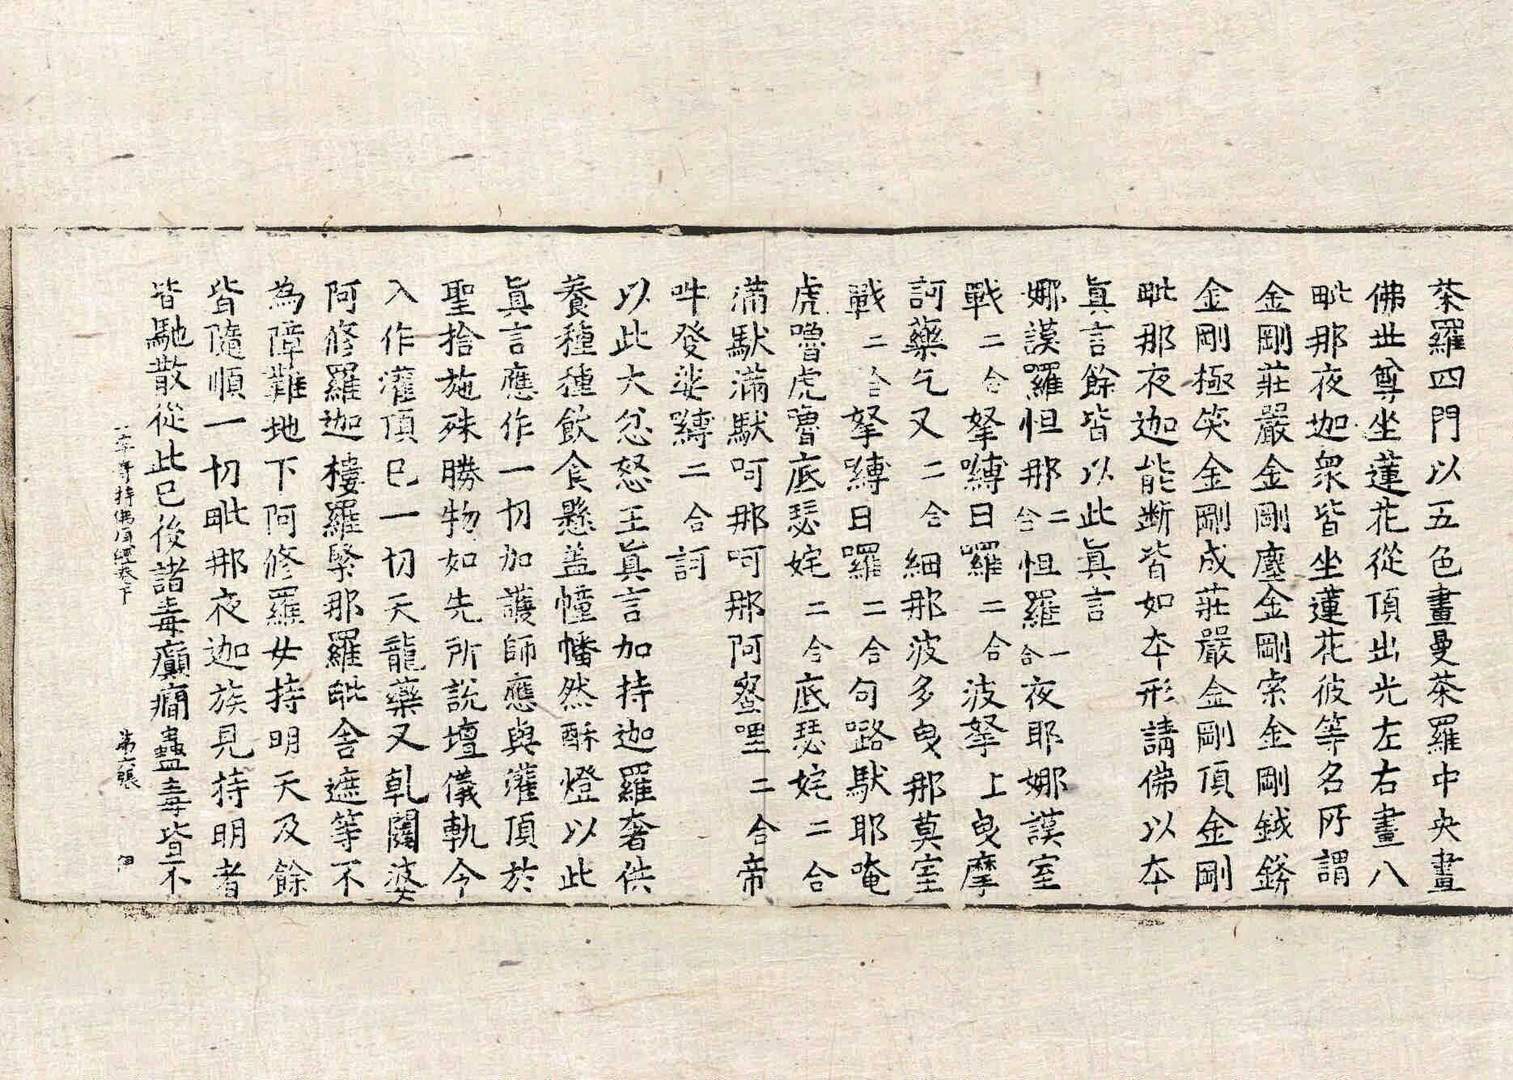 茶羅四門以五色畫曼茶羅中央畫
佛世尊坐蓮花從頂出光左右畫八
毗那夜迦衆皆坐蓮花彼等名所謂
金剛莊嚴金剛塵金剛索金剛鉞鎊
金剛極笑金剛成莊嚴金剛頂金剛
毗那夜迦能斷皆如本形請佛以本
眞言餘皆以此眞言
娜謨羅怛那二合怛羅一合夜耶娜謨室
戰二合拏嚩日囉二合波拏上曳摩
訶藥乞叉二合細那波多曳那莫室
戰二合拏嚩日羅二合句嚕馱耶唵
虎嚕虎嚕底瑟姹二合底瑟姹二合
滿馱滿馱呵那呵那阿蜜哩二合帝
吽發娑縛二合訶
以此大忿怒王眞言加持迦羅奢供
養種種飲食懸盖幢幡然酥燈以此
眞言應作一切加護師應與灌頂於
聖捨施殊勝物如先所說壇儀軌令
入作灌頂巳一切天龍藥叉乹闥婆
阿修羅迦樓羅緊那羅毗舍遮等不
為障難地下阿修羅女持明天及餘
皆隨順一切毗那夜迦族見持明者
皆馳散從此巳後諸毒癲癎蠱毒皆不
一字奇特佛頂經卷下 第六張